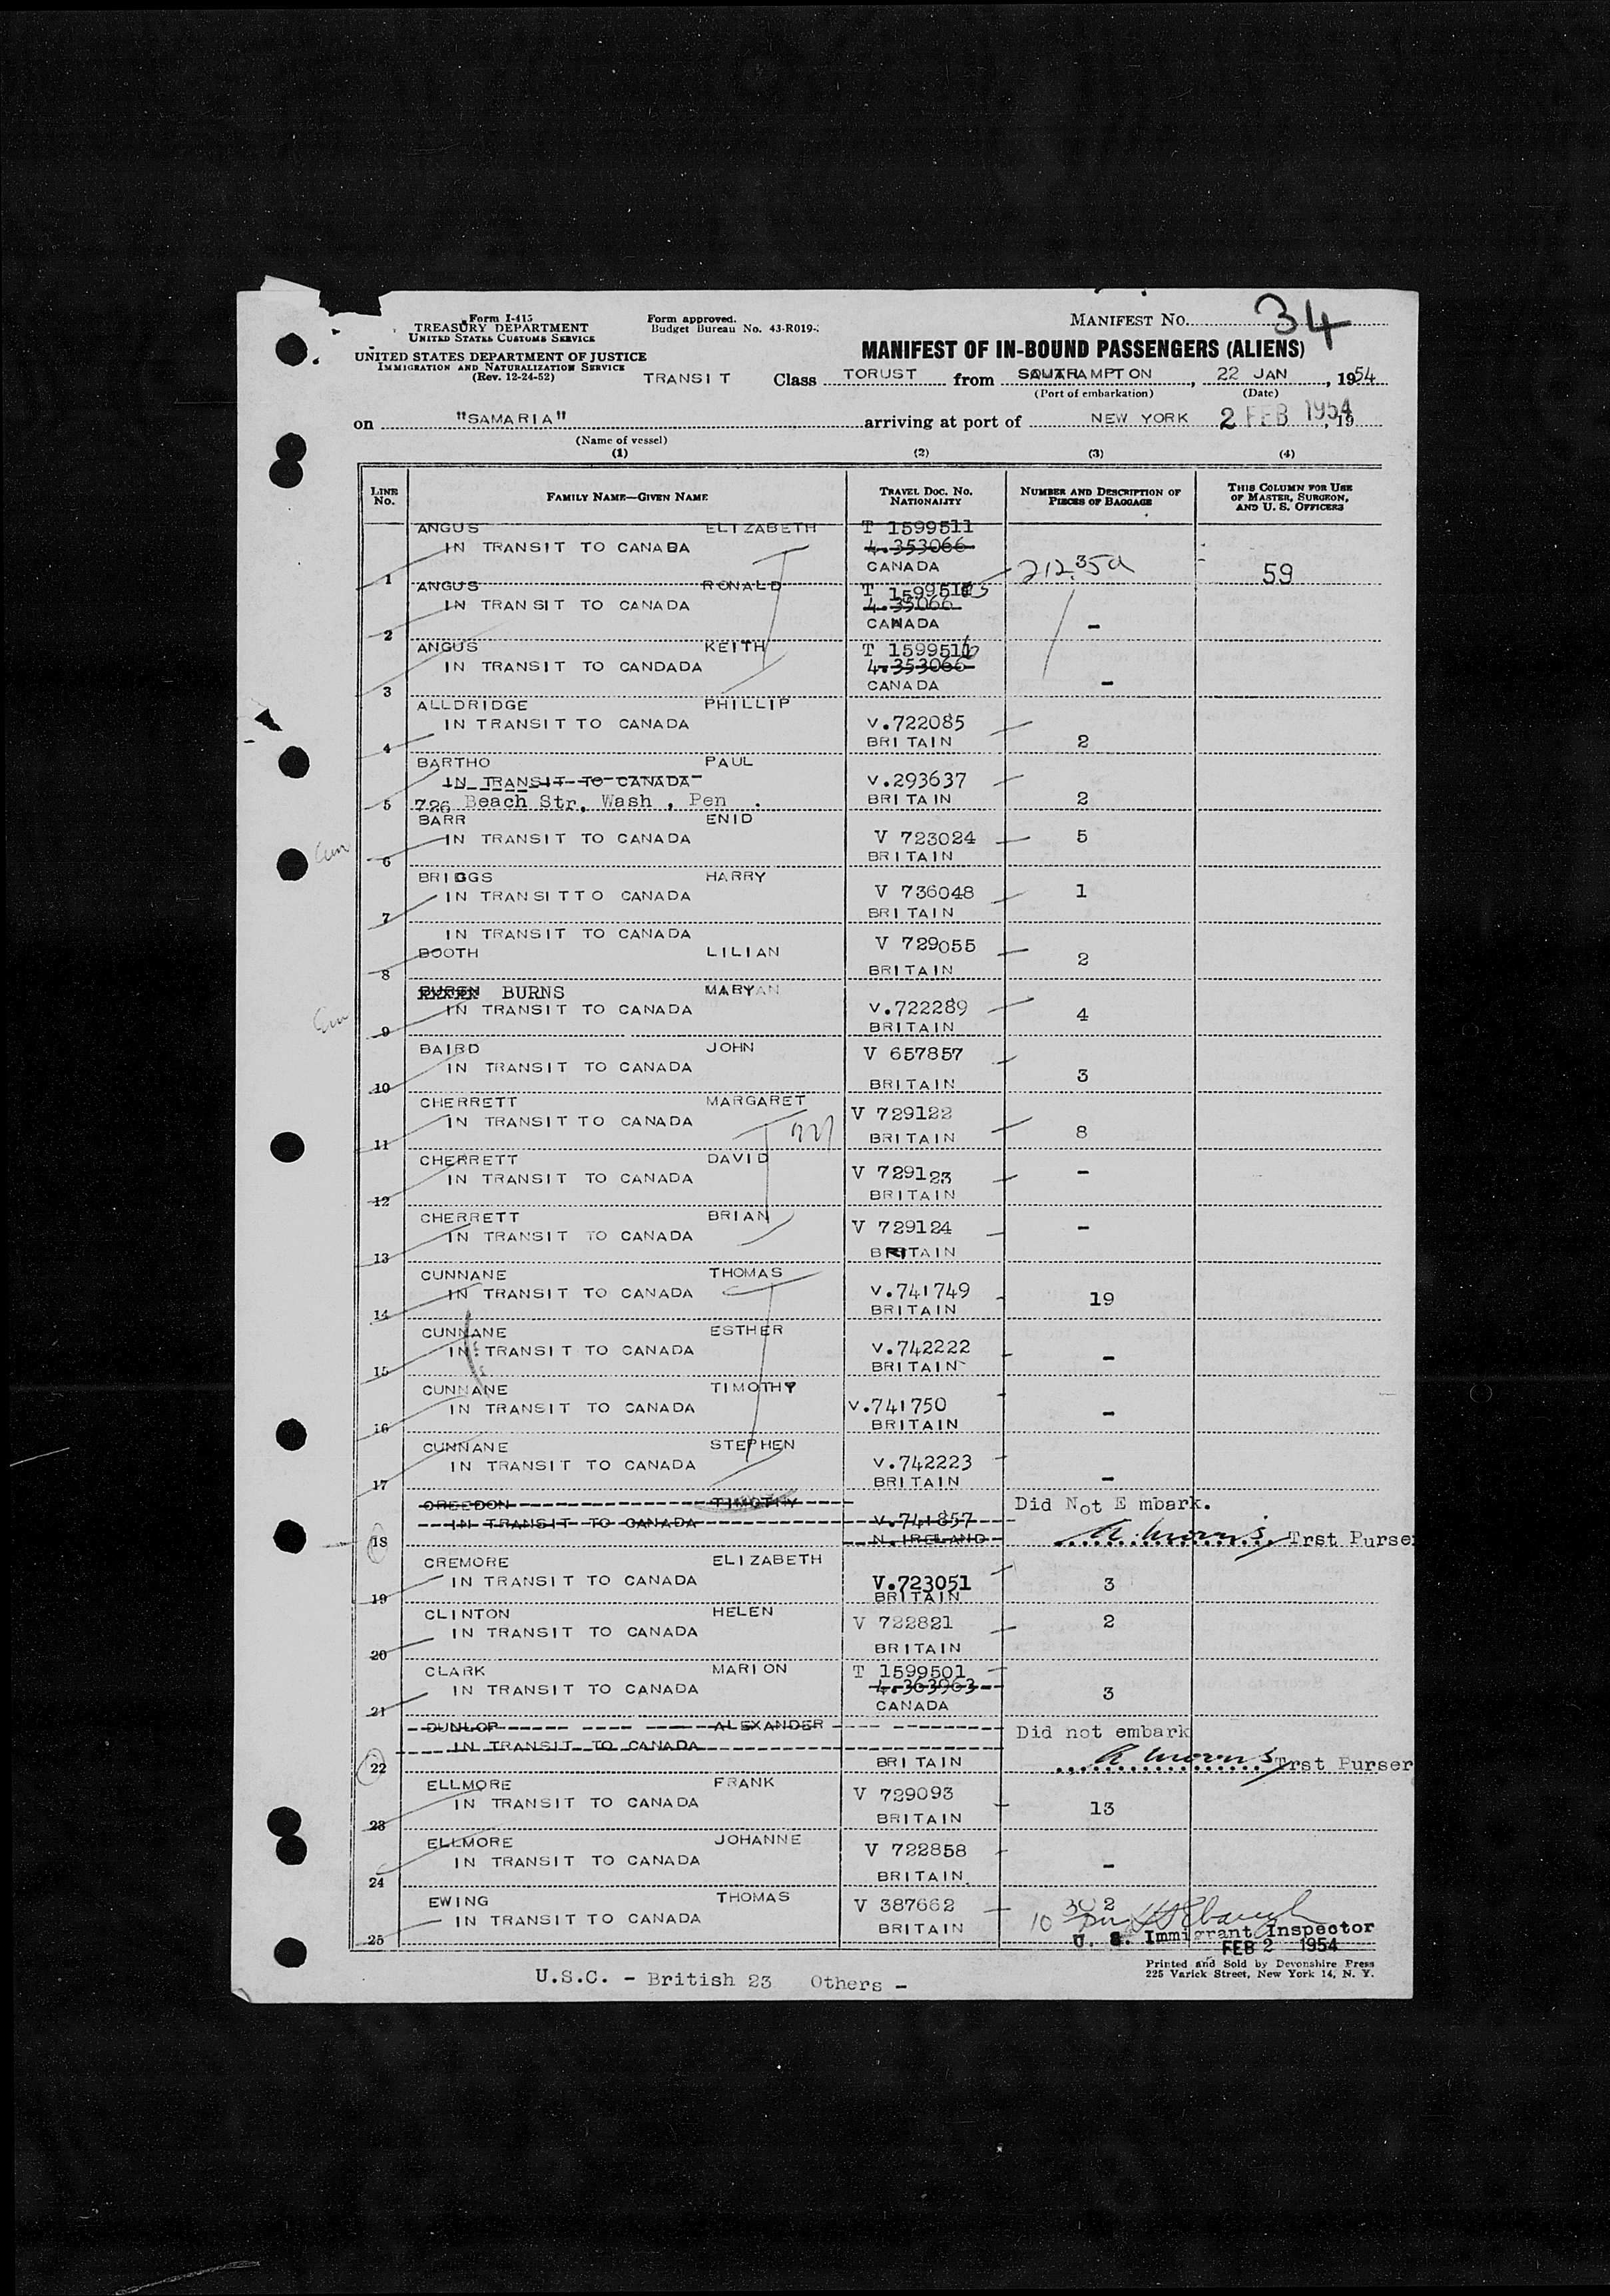 Form I-415
TREASURY DEPARTMENT
UNITED STATES CUSTOMS SERVICE
UNITED STATES DEPARTMENT OF JUSTICE
IMMIGRATION AND NATURALIZATION SERVICE
(Rev. 12-24-52)
Form approved.
Budget Bureau No. 43-R019-
MANIFEST No. 34
MANIFEST OF IN-BOUND PASSENGERS (ALIENS)
TRANSIT Class TORUST from SOUTHAMPTON, 22 JAN, 1954
(Port of embarkation) (Date)
on "SAMARIA" arriving at port of NEW YORK 2 FEB 1954, 19
(Name of vessel)
(1) (2) (3) (4)
LINE No. FAMILY NAME—GIVEN NAME TRAVEL DOC. NO. NATIONALITY NUMBER AND DESCRIPTION OF PIECES OF BAGGAGE THIS COLUMN FOR USE OF MASTER, SURGEON, AND U. S. OFFICERS
ANGUS ELIZABETH T 1599511
IN TRANSIT TO CANADA 4.353066
1 CANADA 59
ANGUS RONALD T
IN TRANSIT TO CANADA 4.35066
2 CANADA -
ANGUS KEITH T
IN TRANSIT TO CANDADA 4.353066
3 CANADA -
ALLDRIDGE PHILLIP
IN TRANSIT TO CANADA v.722085
4 BRITAIN 2
BARTHO PAUL
IN TRANSIT TO CANADA v.293637
5 726 Beach Str. Wash , Pen . BRITAIN 2
BARR ENID
IN TRANSIT TO CANADA V 723024 5
6 BRITAIN
BRIGGS HARRY
IN TRANSITTO CANADA V 736048 1
7 BRITAIN
IN TRANSIT TO CANADA V 729055
BOOTH LILIAN 2
8 BRITAIN
BURSN BURNS MARYAN
IN TRANSIT TO CANADA v.722289 4
9 BRITAIN
BAIRD JOHN V 657857
IN TRANSIT TO CANADA 3
10 BRITAIN
CHERRETT MARGARET V 729122
IN TRANSIT TO CANADA
11 BRITAIN 8
CHERRETT DAVID V 729123 -
IN TRANSIT TO CANADA
12 BRITAIN
CHERRETT BRIAN V 729124 -
IN TRANSIT TO CANADA
13 BRITAIN
CUNNANE THOMAS
IN TRANSIT TO CANADA v.741749 19
14 BRITAIN
CUNNANE ESTHER
IN TRANSIT TO CANADA v.742222
15 BRITAIN -
CUNNANE TIMOTHY
IN TRANSIT TO CANADA v.741750
16 BRITAIN -
CUNNANE STEPHEN
IN TRANSIT TO CANADA v.742223
17 BRITAIN -
CREEDON TIMOTHY Did Not E mbark.
IN TRANSIT TO CANADA v.741857
18 N.IRELAND Trst Purser
CREMORE ELIZABETH
IN TRANSIT TO CANADA V.723051 3
19 BRITAIN
CLINTON HELEN V 722821 2
IN TRANSIT TO CANADA
20 BRITAIN
CLARK MARION T 1599501
IN TRANSIT TO CANADA 4.363963 3
21 CANADA
DUNLOP ALEXANDER Did not embark
IN TRANSIT TO CANADA
22 BRITAIN Trst Purser
ELLMORE FRANK V 729093
IN TRANSIT TO CANADA 13
23 BRITAIN
ELLMORE JOHANNE V 722858
IN TRANSIT TO CANADA -
24 BRITAIN.
EWING THOMAS V 387662 2
IN TRANSIT TO CANADA BRITAIN
25 U. S. Immigrant Inspector
FEB 2 1954
Printed and Sold by Devonshire Press
225 Varick Street, New York 14, N. Y.
U.S.C. - British 23 Others -